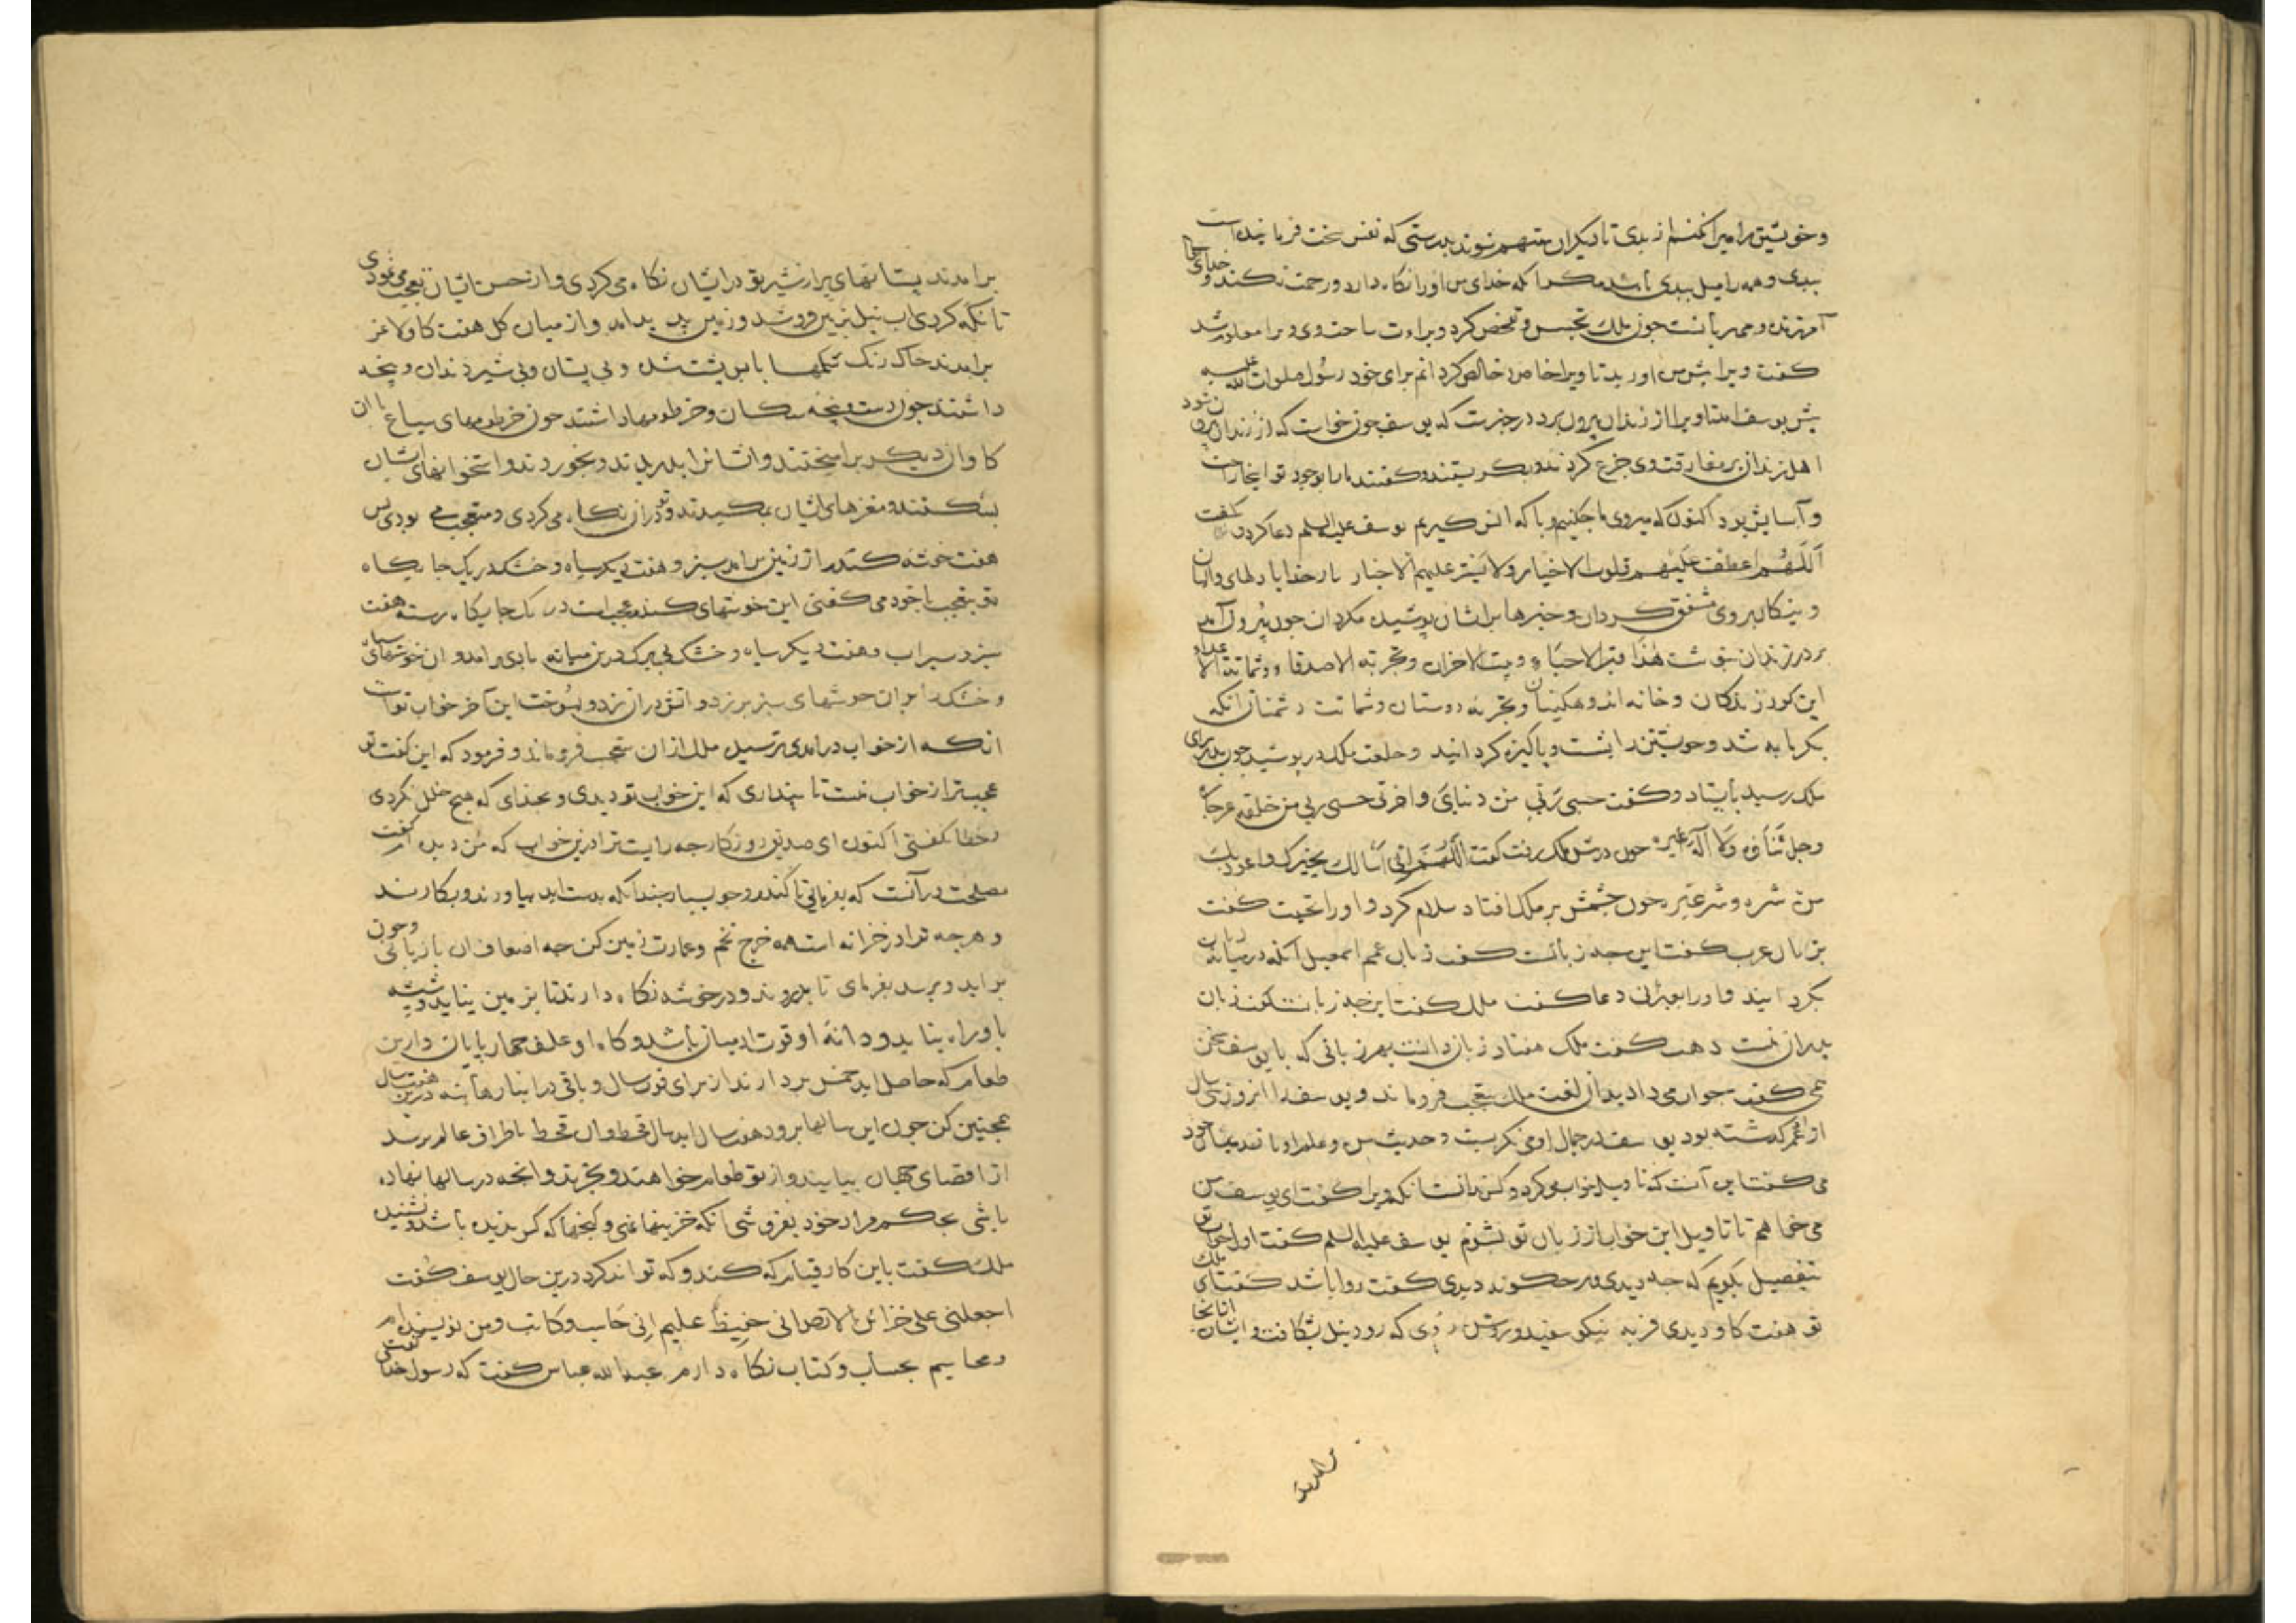 وخویشتن را مبرا نکنم از بدی تا دیکران متهم نشوند بدرستی که نفس سخت فرماینده است
ببدی و همه را میل ببدی باشد مکر انکه خدای من او را نکاه دارد و رحمت کند و خدای ما
آمرزنده و مهربانست جون ملک تجسس و تفحص کرد و براءت ساحت وی ویرا معلوم شد
کفت ویرا پیش من اورید تا ویرا خاص و خالص کردانم برای خود رسول صلوات الله علیه
پیش یوسف امد تا ویرا از زندان بیرون برد در خبرست که یوسف جون خواست که از زندان بیرون شود
اهل زندان بر مفارقت وی جزع کردند و بکریستند و کفتند ما را بوجود تو اینجا راحت
و آسایش بود اکنون که میروی ما جکنیم و با که انس کیریم یوسف علیه السلم دعا کرد و کفت
اللهم اعطف علیهم قلوب الاخیار ولا تستر علیهم الاخبار بار خدایا دلهای
و نیکان بروی مشفق کردان و خبرها بر ایشان پوشیده مکردان جون بیرون آمد
بر در زندان بنوشت هذا قبر الاحیاء و بیت الاحزان و تجربة الاصدقاء و شماتة الاعداء
این کور زندکان و خانه اندوهکینان و تجربه دوستان و شماتت دشمنان انکه
بکرمابه شد و خویشتن را بشست و پاکیزه کردانید و خلعت ملک در پوشید جون بدر سرای
ملک رسید بایستاد و کفت حسبی ربی من دنیای و اخرتی حسبی ربی من خلقه عز جاره
وجل ثناؤه ولا اله غیره جون در پیش ملک رفت کفت اللهم انی اسالک بخیرک واعوذ بک
من شره وشر غیره جون جشمش بر ملک افتاد سلام کرد و او را تحیت کفت
بزبان عرب کفت این جه زبانست کفت زبان عمم اسمعیل آنکه در میانه
بکردانید و او را بعبرانی دعا کفت ملک کفت این جه زبانست کفت زبان
پدران منست وهب کفت ملک هفتاد زبان دانست بهر زبانی که با یوسف سخن
می کفت جواب می داد بدان لغت ملک بتعجب فرو ماند و یوسف را انروز سی سال
از عمر کذشته بود یوسف در جمال او می نکریست و حدیث سن و علم او با ندیمان خود
می کفت این آنست که تاویل خواب من کرد و کس ندانست انکه ویرا کفت ای یوسف من
می خواهم تا تاویل این خواب از زبان تو بشنوم یوسف علیه السلم کفت اول خواب تو
بتفصیل بکویم که جه دیدی و بر جکونه دیدی کفت روا باشد کفت ای ملک
تو هفت کاو دیدی فربه نیکو سفید و روشن روی که رود نیل بشکافت و ایشان از انجا
برامدند
برامدند پستانهای پر از شیر تو در ایشان نکاه می کردی و از حسن ایشان تعجب می نمودی
تا نکه کردی اب نیل بزمین فرو شد و زمین پدید امد و از میان کل هفت کاو لاغر
برامدند خاک رنک شکمها با پس پشت شده و بی پستان و بی شیر دندان و پنجه
داشتند جون دست و پنجه سکان و خرطومها داشتند جون خرطومهای سباع با ان
کاوان دیکر برامیختند و ایشانرا بدریدند و بخوردند و استخوانهای ایشان
بشکستند و مغزهای ایشان بمکیدند و تو در ان نکاه می کردی و متعجب می بودی پس
هفت خوشه کندم از زمین برامد سبز و هفت دیکر سیاه و خشک در یک جایکاه
تو بتعجب با خود می کفتی این خوشهای کندم عجب است در یک جایکاه رسته هفت
سبز و سیراب و هفت دیکر سیاه و خشک بی برک درین میانه بادی برامد و ان خوشهای سیاه
و خشک را بر ان خوشهای سبز بر زد و اتش در ان زد و بسوخت این آخر خواب تو است
انکه از خواب درامدی ترسیده ملک از ان متعجب فرو ماند و فرمود که این کفت تو
عجبتر از خواب منست تا پنداری که این خواب تو دیدی و بخدای که هیج خلل نکردی
و خطا نکفتی اکنون ای صدیق روزکار جه رایست ترا درین خواب که من دیده ام کفت
مصلحت در آنست که بفرمایی تا کندم و جو بسیار جندانکه بدست اید بیاورند و بکارند
و هرجه ترا در خزانه است همه خرج تخم و عمارت زمین کن جه اضعاف ان باز یابی و جون
براید و برسد بفرمای تا بدروند و در خوشه نکاه دارند تا بزمین نیاید و شپشه
باو راه نیابد و دانه او قوت ادمیان باشد و کاه او علف جهار پایان و ازین
طعام که حاصل اید خمس بردارند از برای قوت سال و باقی در انبارها بنه درین هفت سال
همجنین کن جون این سالها برود هفت سال اید سال قحط و ان قحط باطراف عالم برسد
از اقصای جهان بیایند و از تو طعام خواهند و بخرند و انجه در سالها نهاده
باشی بحکم مراد خود بفروشی انکه خزینها نهی و کنجها که کس ندیده باشد و نشنیده
ملک کفت باین کار قیام که کند و که تواند کرد درین حال یوسف کفت
اجعلنی علی خزائن الارض انی حفیظ علیم انی حاسب وکاتب ومن نویسنده ام
و محاسبم بحساب و کتاب نکاه دارم عبد الله عباس کفت که رسول خدا کفت